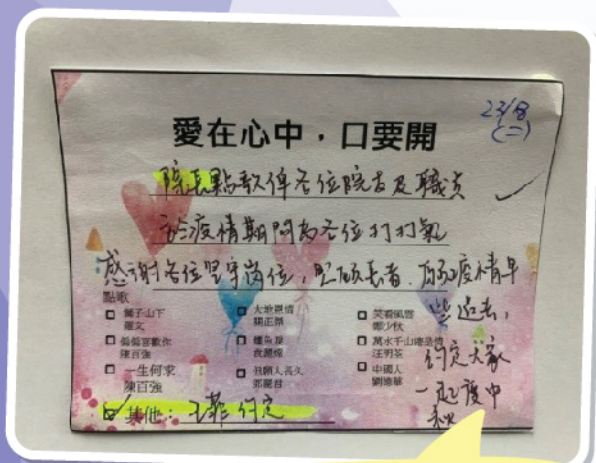 23/8
(二)
愛在心中，口要開
院長點歌俾各位院舍及職員
於疫情期間為各位打打氣
感謝各位堅守崗位，照顧長者，願疫情早
些過去，
約定大家
一起度中
秋
點歌
□ 獅子山下
羅文
□ 偏偏喜歡你
陳百強
□ 一生何求
陳百強
□ 大地恩情
關正傑
□ 鱷魚淚
袁麗嫦
□ 但願人長久
鄧麗君
□ 笑看風雲
鄭少秋
□ 萬水千山總是情
汪明荃
□ 中國人
劉德華
☑ 其他：王菲 約定